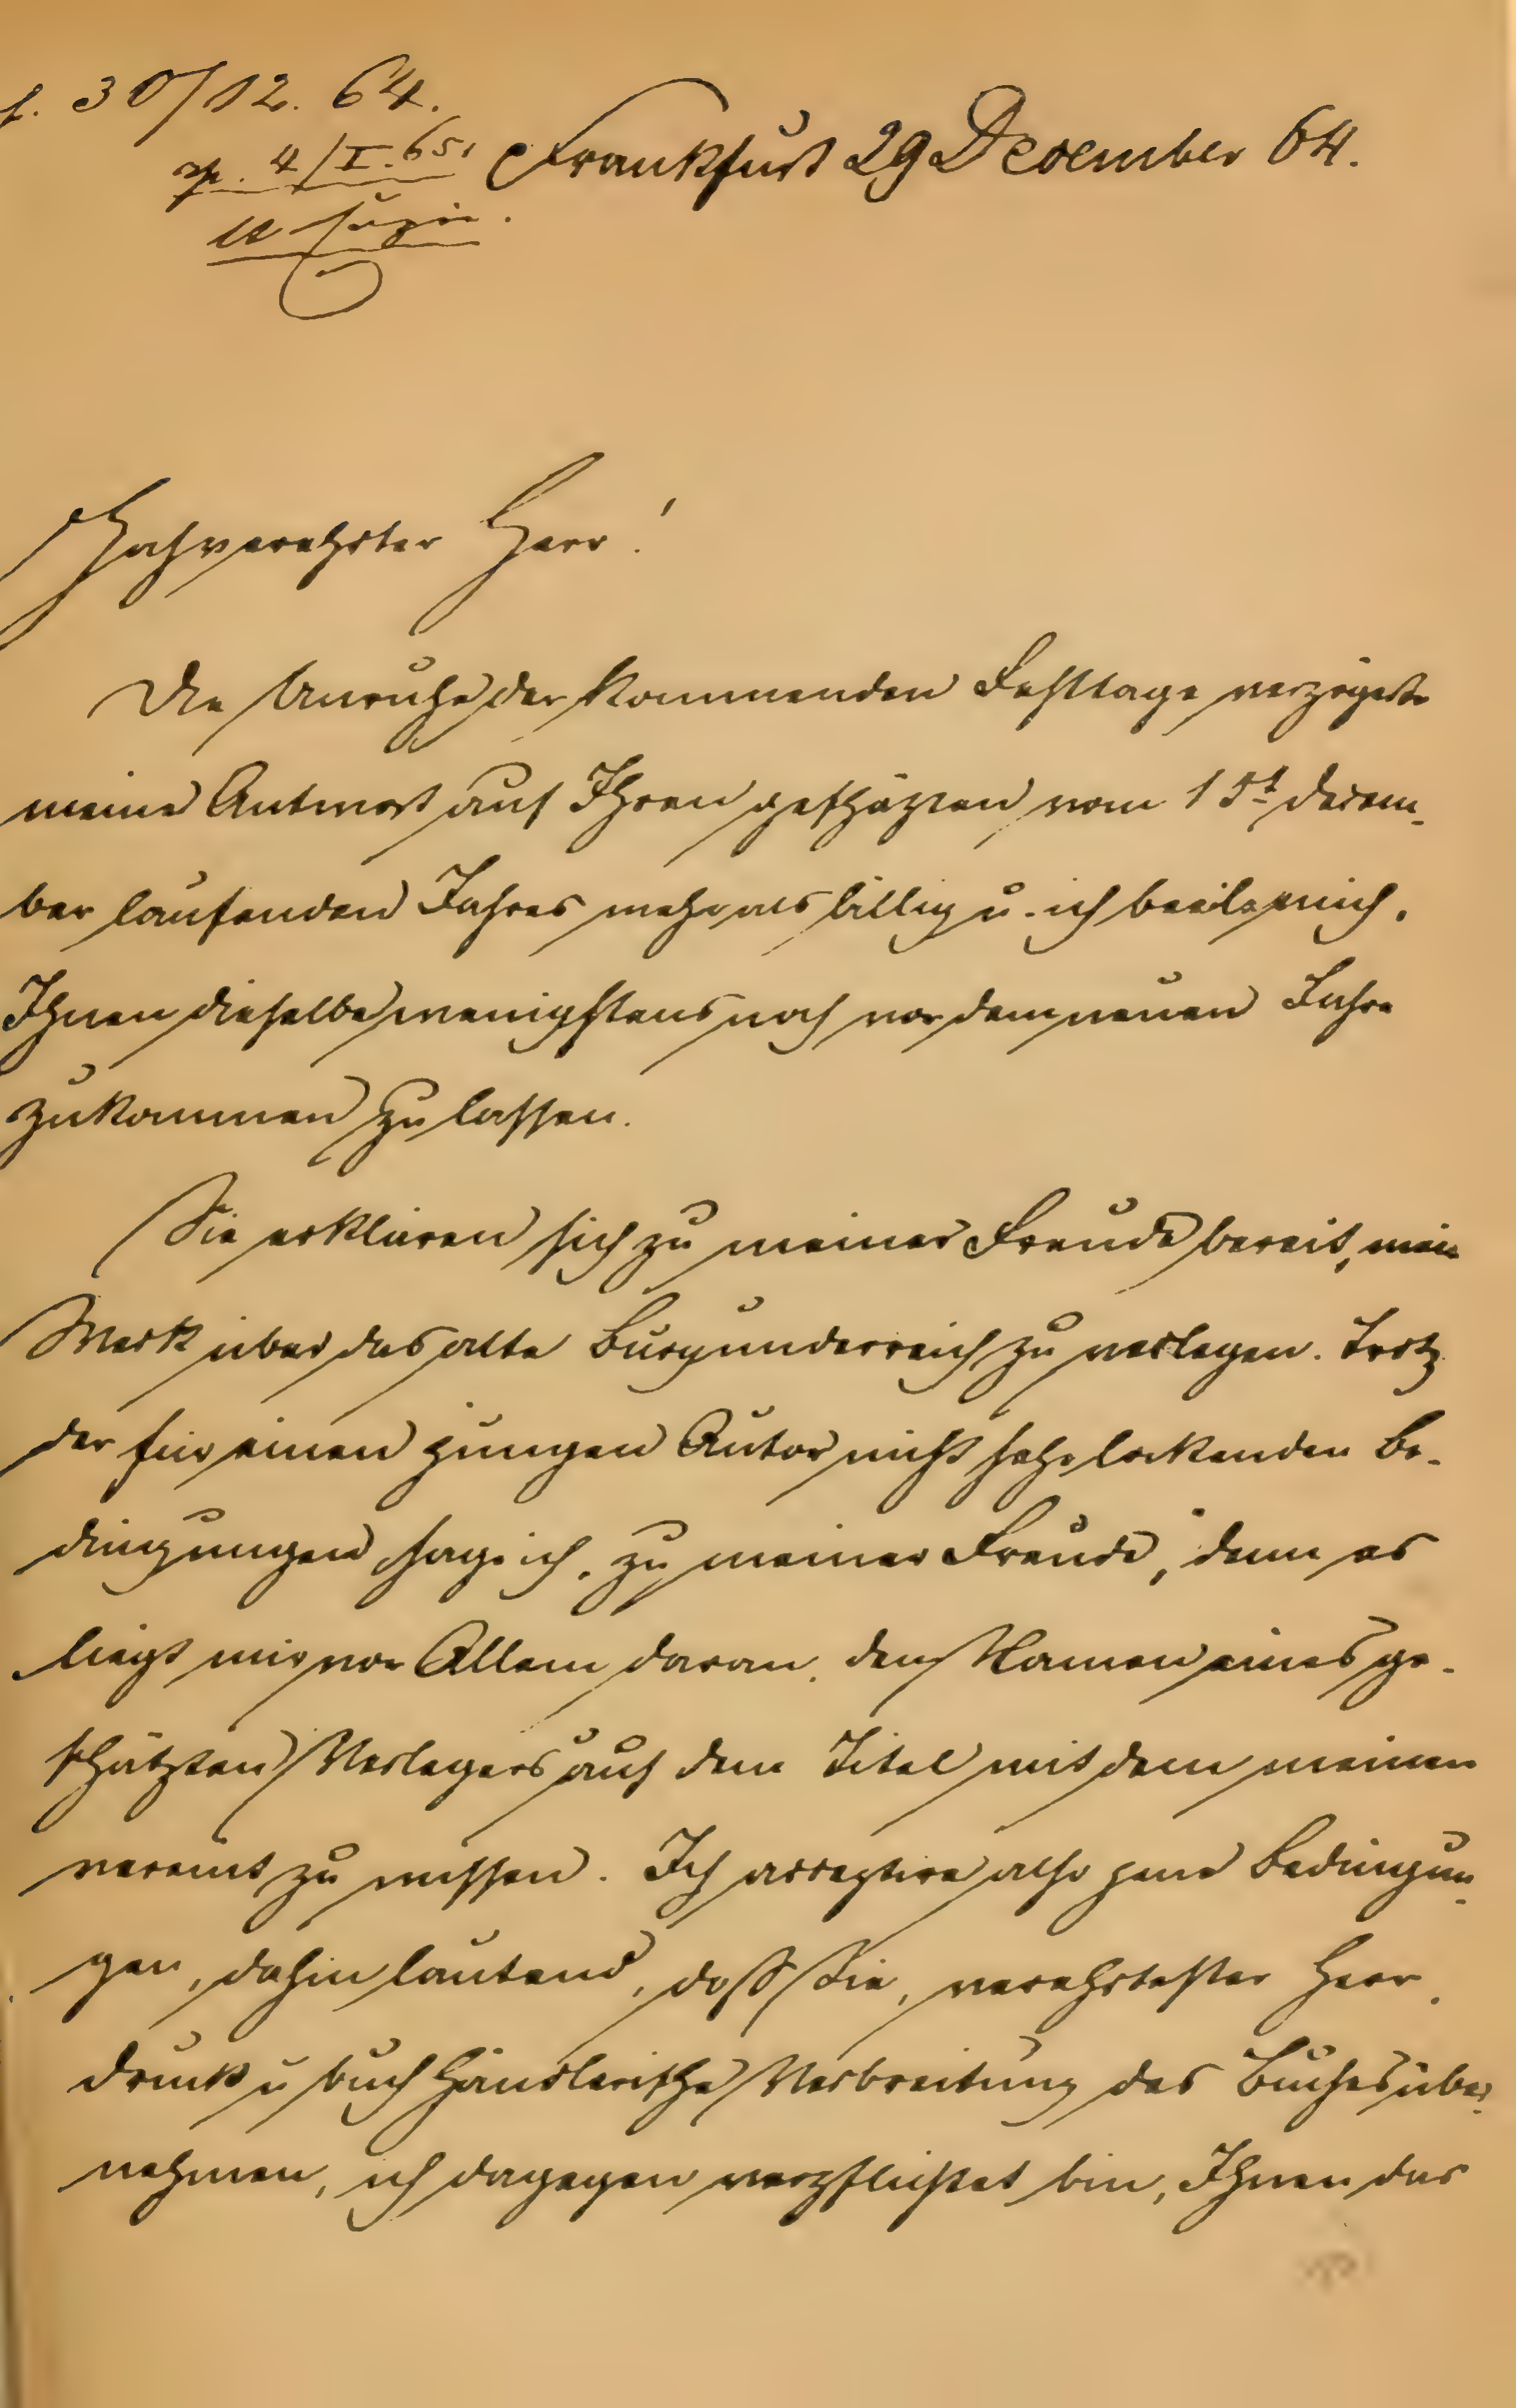 30/12. 64.
4/I. 65.
Frankfurt 29 December 64.
Hochverehrter Herr!
Die Unruhe der kommenden Festtage verzögerte
meine Antwort auf Ihren geschäzten vom 15t. Decem-
ber laufenden Jahres mehr als billig u. ich beeile mich,
Ihnen dieselbe wenigstens noch vor dem neuen Jahre
zukommen zu lassen.
Sie erklären sich zu meiner Freude bereit, mein
Werk über das alte Burgunderreich zu verlegen. Trotz
der für einen jungen Autor nicht sehr lockenden Be-
dingungen sage ich „zu meiner Freude", denn es
liegt mir vor Allem daran, den Namen eines ge-
schätzten Verlegers auf dem Titel mit dem meinen
vereint zu wissen. Ich acceptire also jene Bedingun-
gen, dahin lautend, daß Sie, verehrtester Herr,
Druck u buchhändlerische Verbreitung des Buches über-
nehmen, ich dagegen verpflichtet bin, Ihnen das